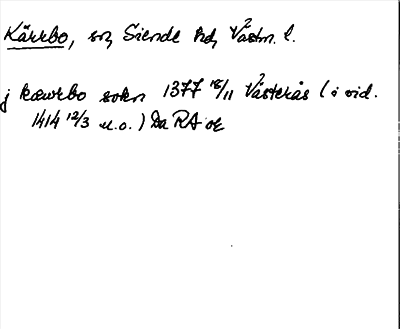 Kärrbo, sn, Siende hd, Västm. l.
j kærrbo sokn 1377 18/11 Västerås (i vid.
1414 12/3 u.o.) Da RA or